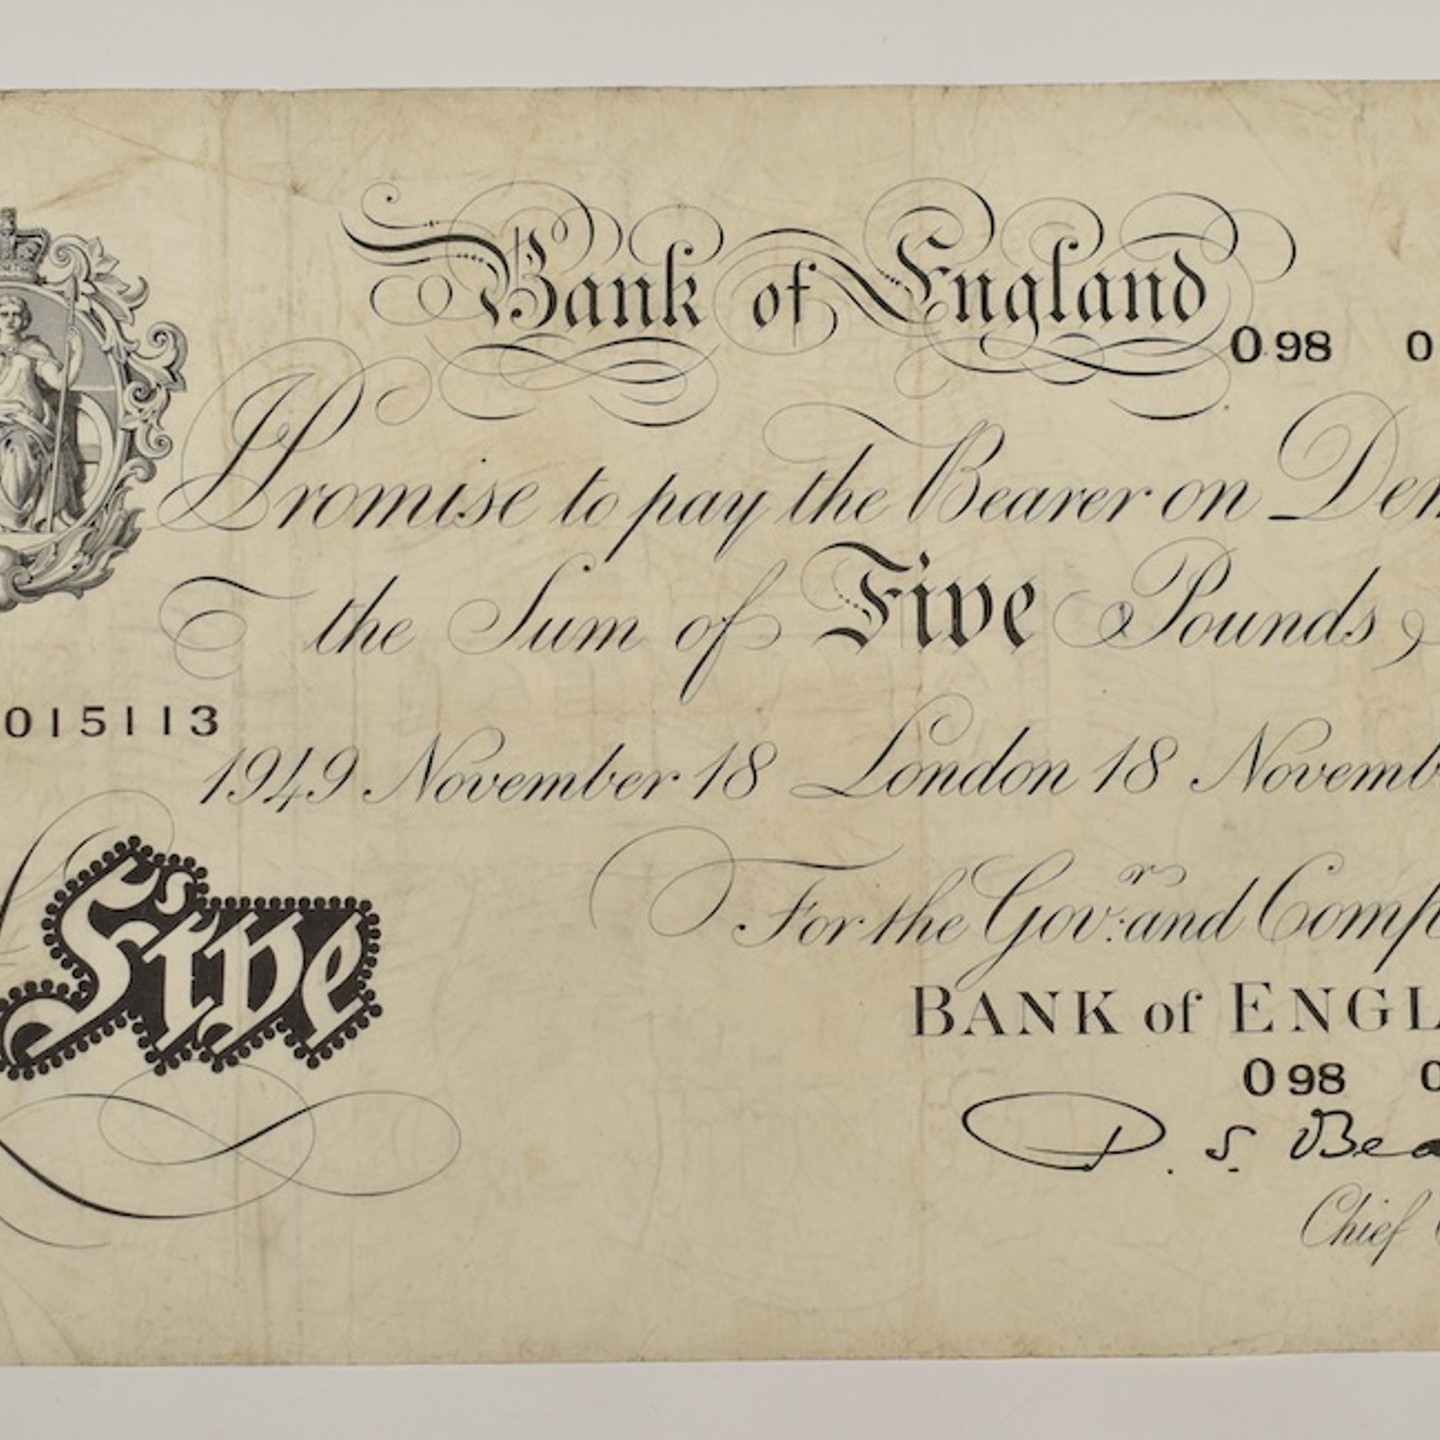 Bank of England
O 98 0
I Promise to pay the Bearer on Dem
the Sum of Five Pounds
015113
1949 November 18 London 18 Novemb
For the Govr. and Comp
Five
BANK of ENGL
O 98 0
P. S. Bea
Chief